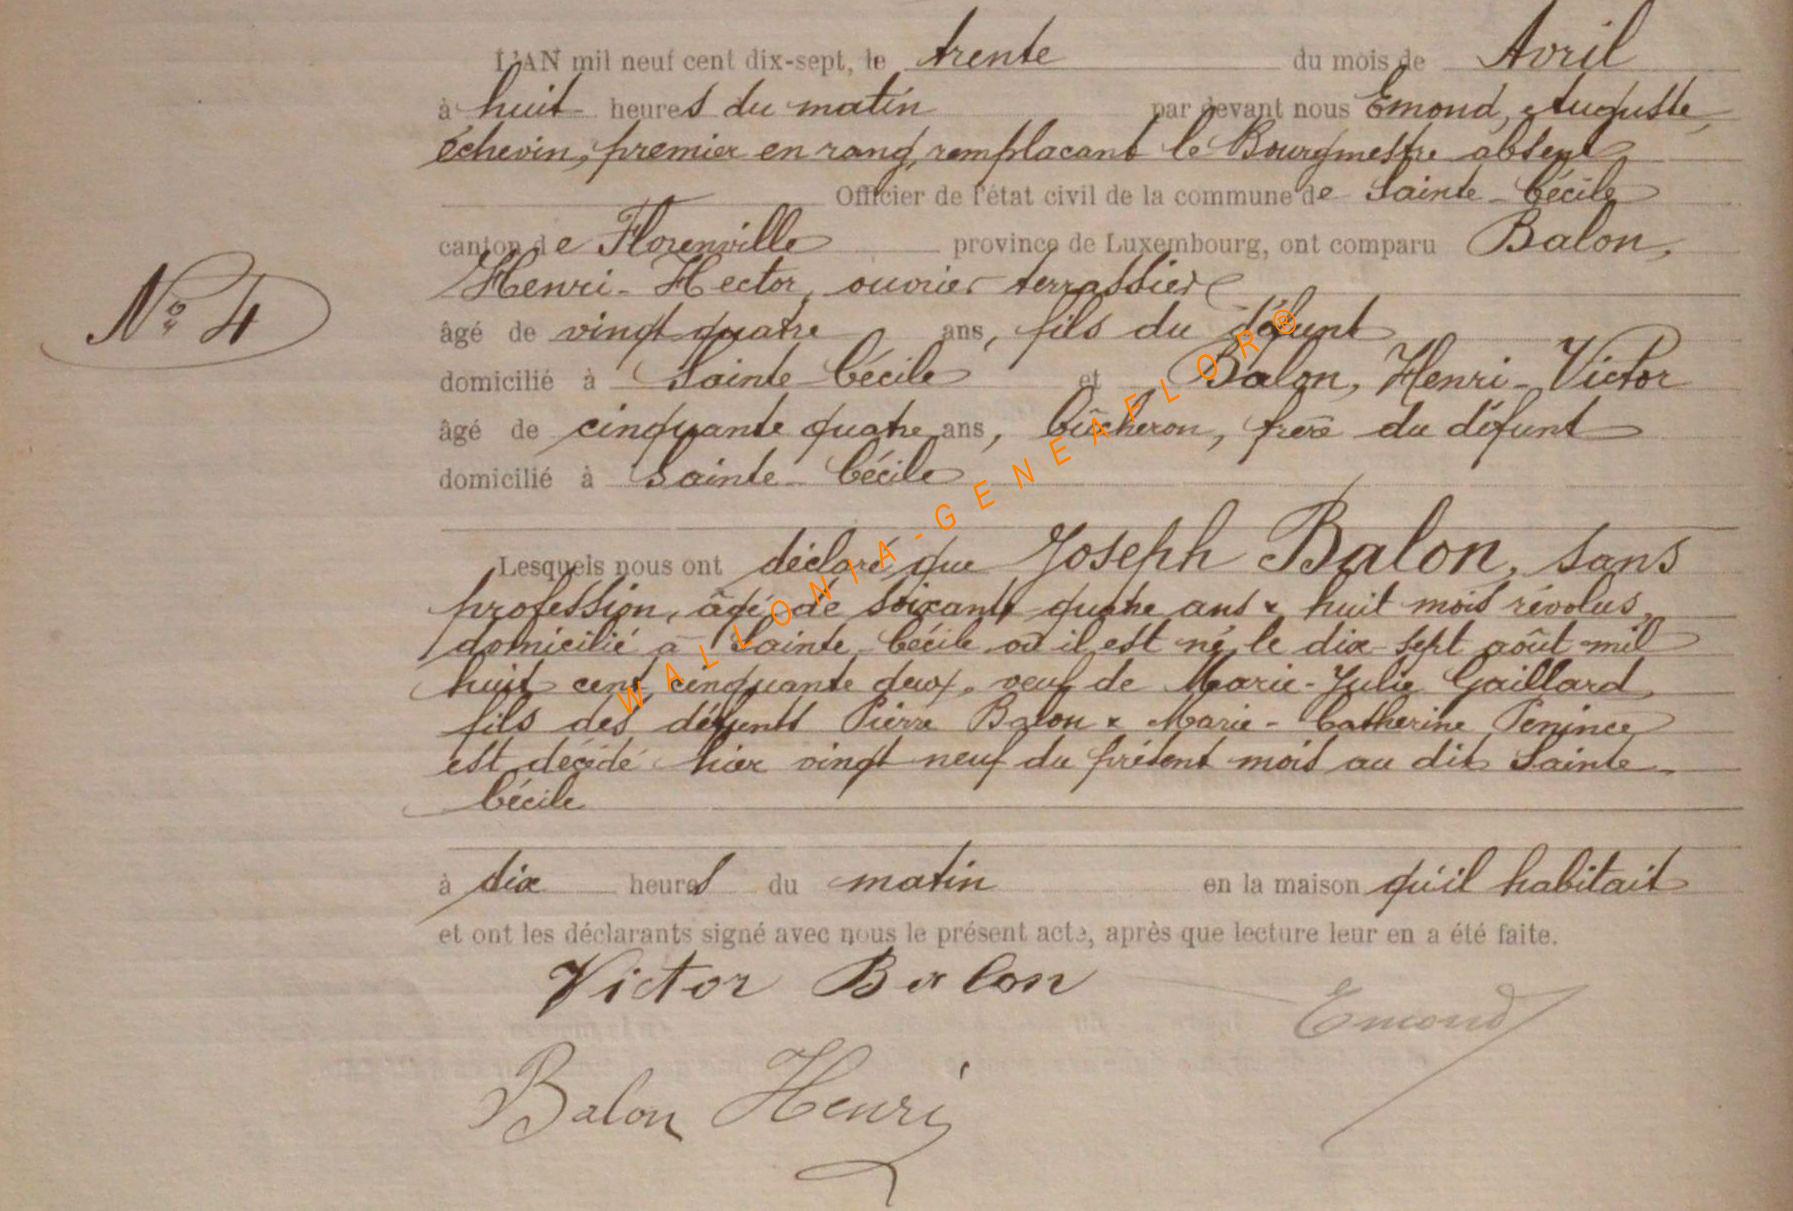 L'AN mil neuf cent dix-sept, le trente du mois de Avril
à huit heures du matin par devant nous Emond, Auguste,
échevin, premier en rang, remplacant le Bourgmestre absent
Officier de l'état civil de la commune de Sainte-Cécile
canton de Florenville province de Luxembourg, ont comparu Balon,
Henri-Hector, ouvrier terrassier
N° 4
âgé de vingt quatre ans, fils du défunt
domicilié à Sainte-Cécile et Balon, Henri-Victor
âgé de cinquante quatre ans, bûcheron, frère du défunt
domicilié à Sainte-Cécile
Lesquels nous ont déclaré que Joseph Balon, sans
profession, âgé de soixante quatre ans & huit mois révolus,
domicilié à Sainte-Cécile où il est né le dix-sept août mil
huit cent cinquante deux, veuf de Marie-Julie Gaillard,
fils des défunts Pierre Balon & Marie-Catherine Penince
est décédé hier vingt neuf du présent mois au dit Sainte-
Cécile
à dix heures du matin en la maison qu'il habitait
et ont les déclarants signé avec nous le présent acte, après que lecture leur en a été faite.
Victor Balon
Emond
Balon Henri
WALLONIA-GENEAFLOR®